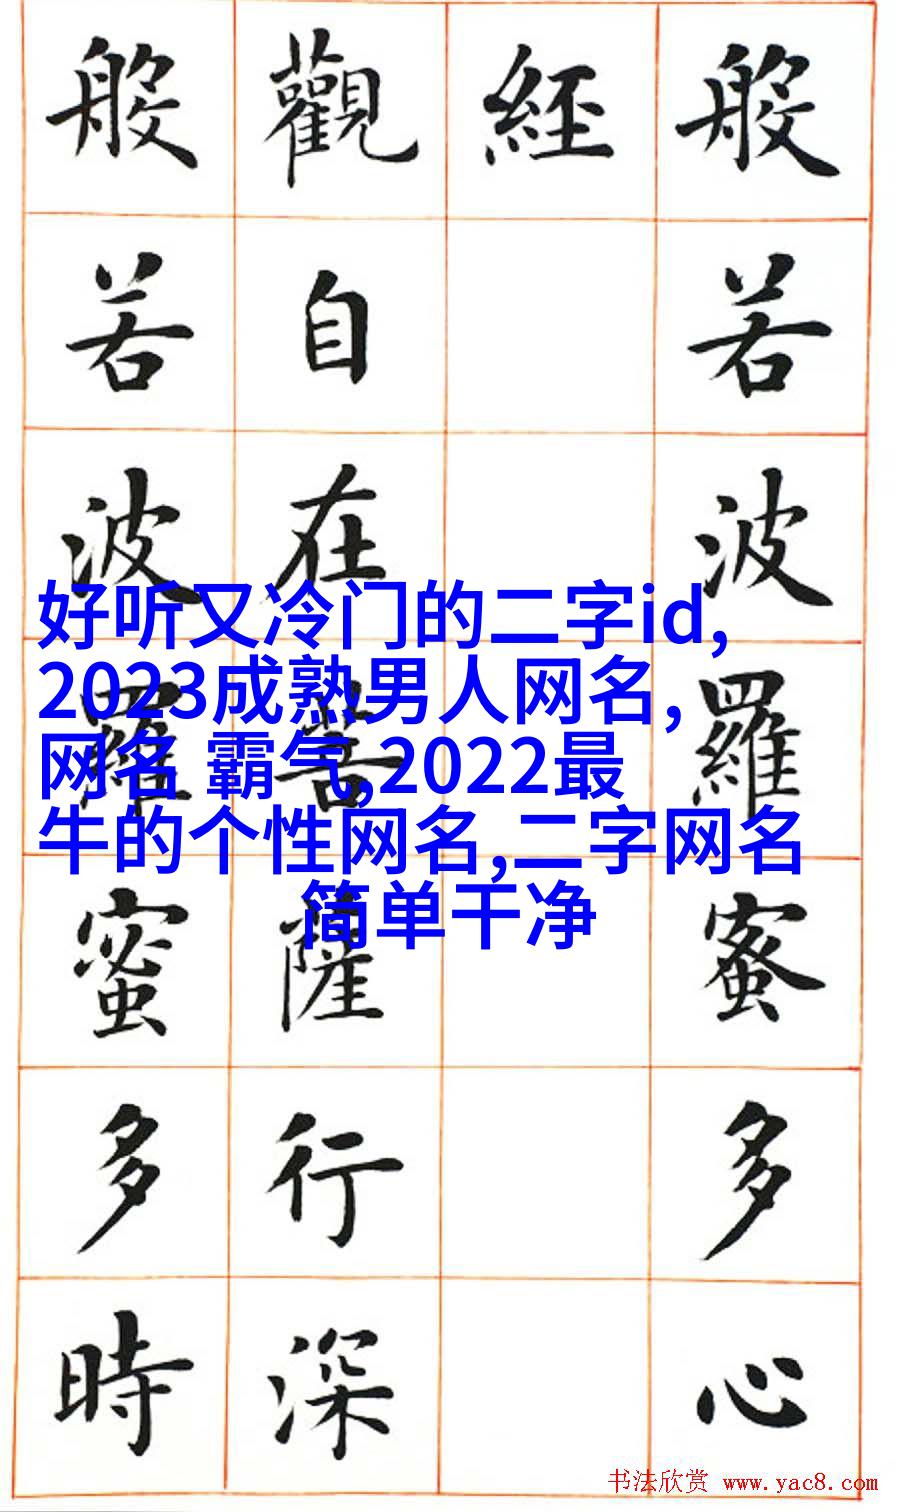 般若波羅蜜多心
經
觀自在菩薩行深
般若波羅蜜多時
好听又冷门的二字id,
2023成熟男人网名,
网名 霸气,2022最
牛的个性网名,二字网名
简单干净
书法欣赏 www.yac8.com